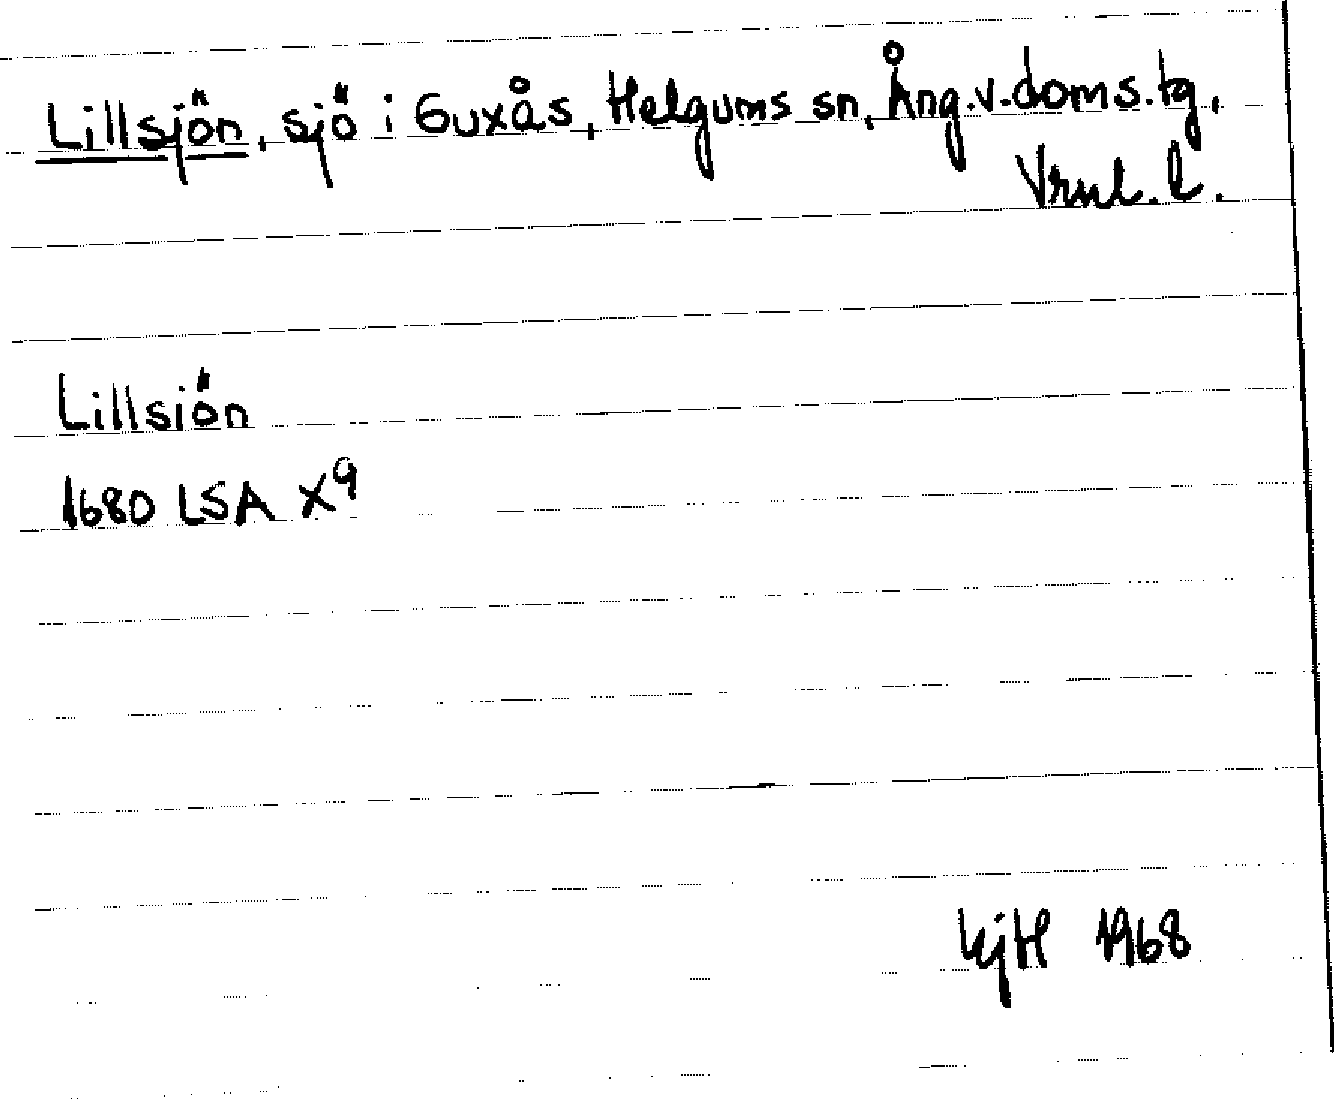 Lillsjön, sjö i Guxås, Helgums sn, Ång.v.doms.tg,
Vrnl. l.
Lillsiön
1680 LSA X9
KjH 1968